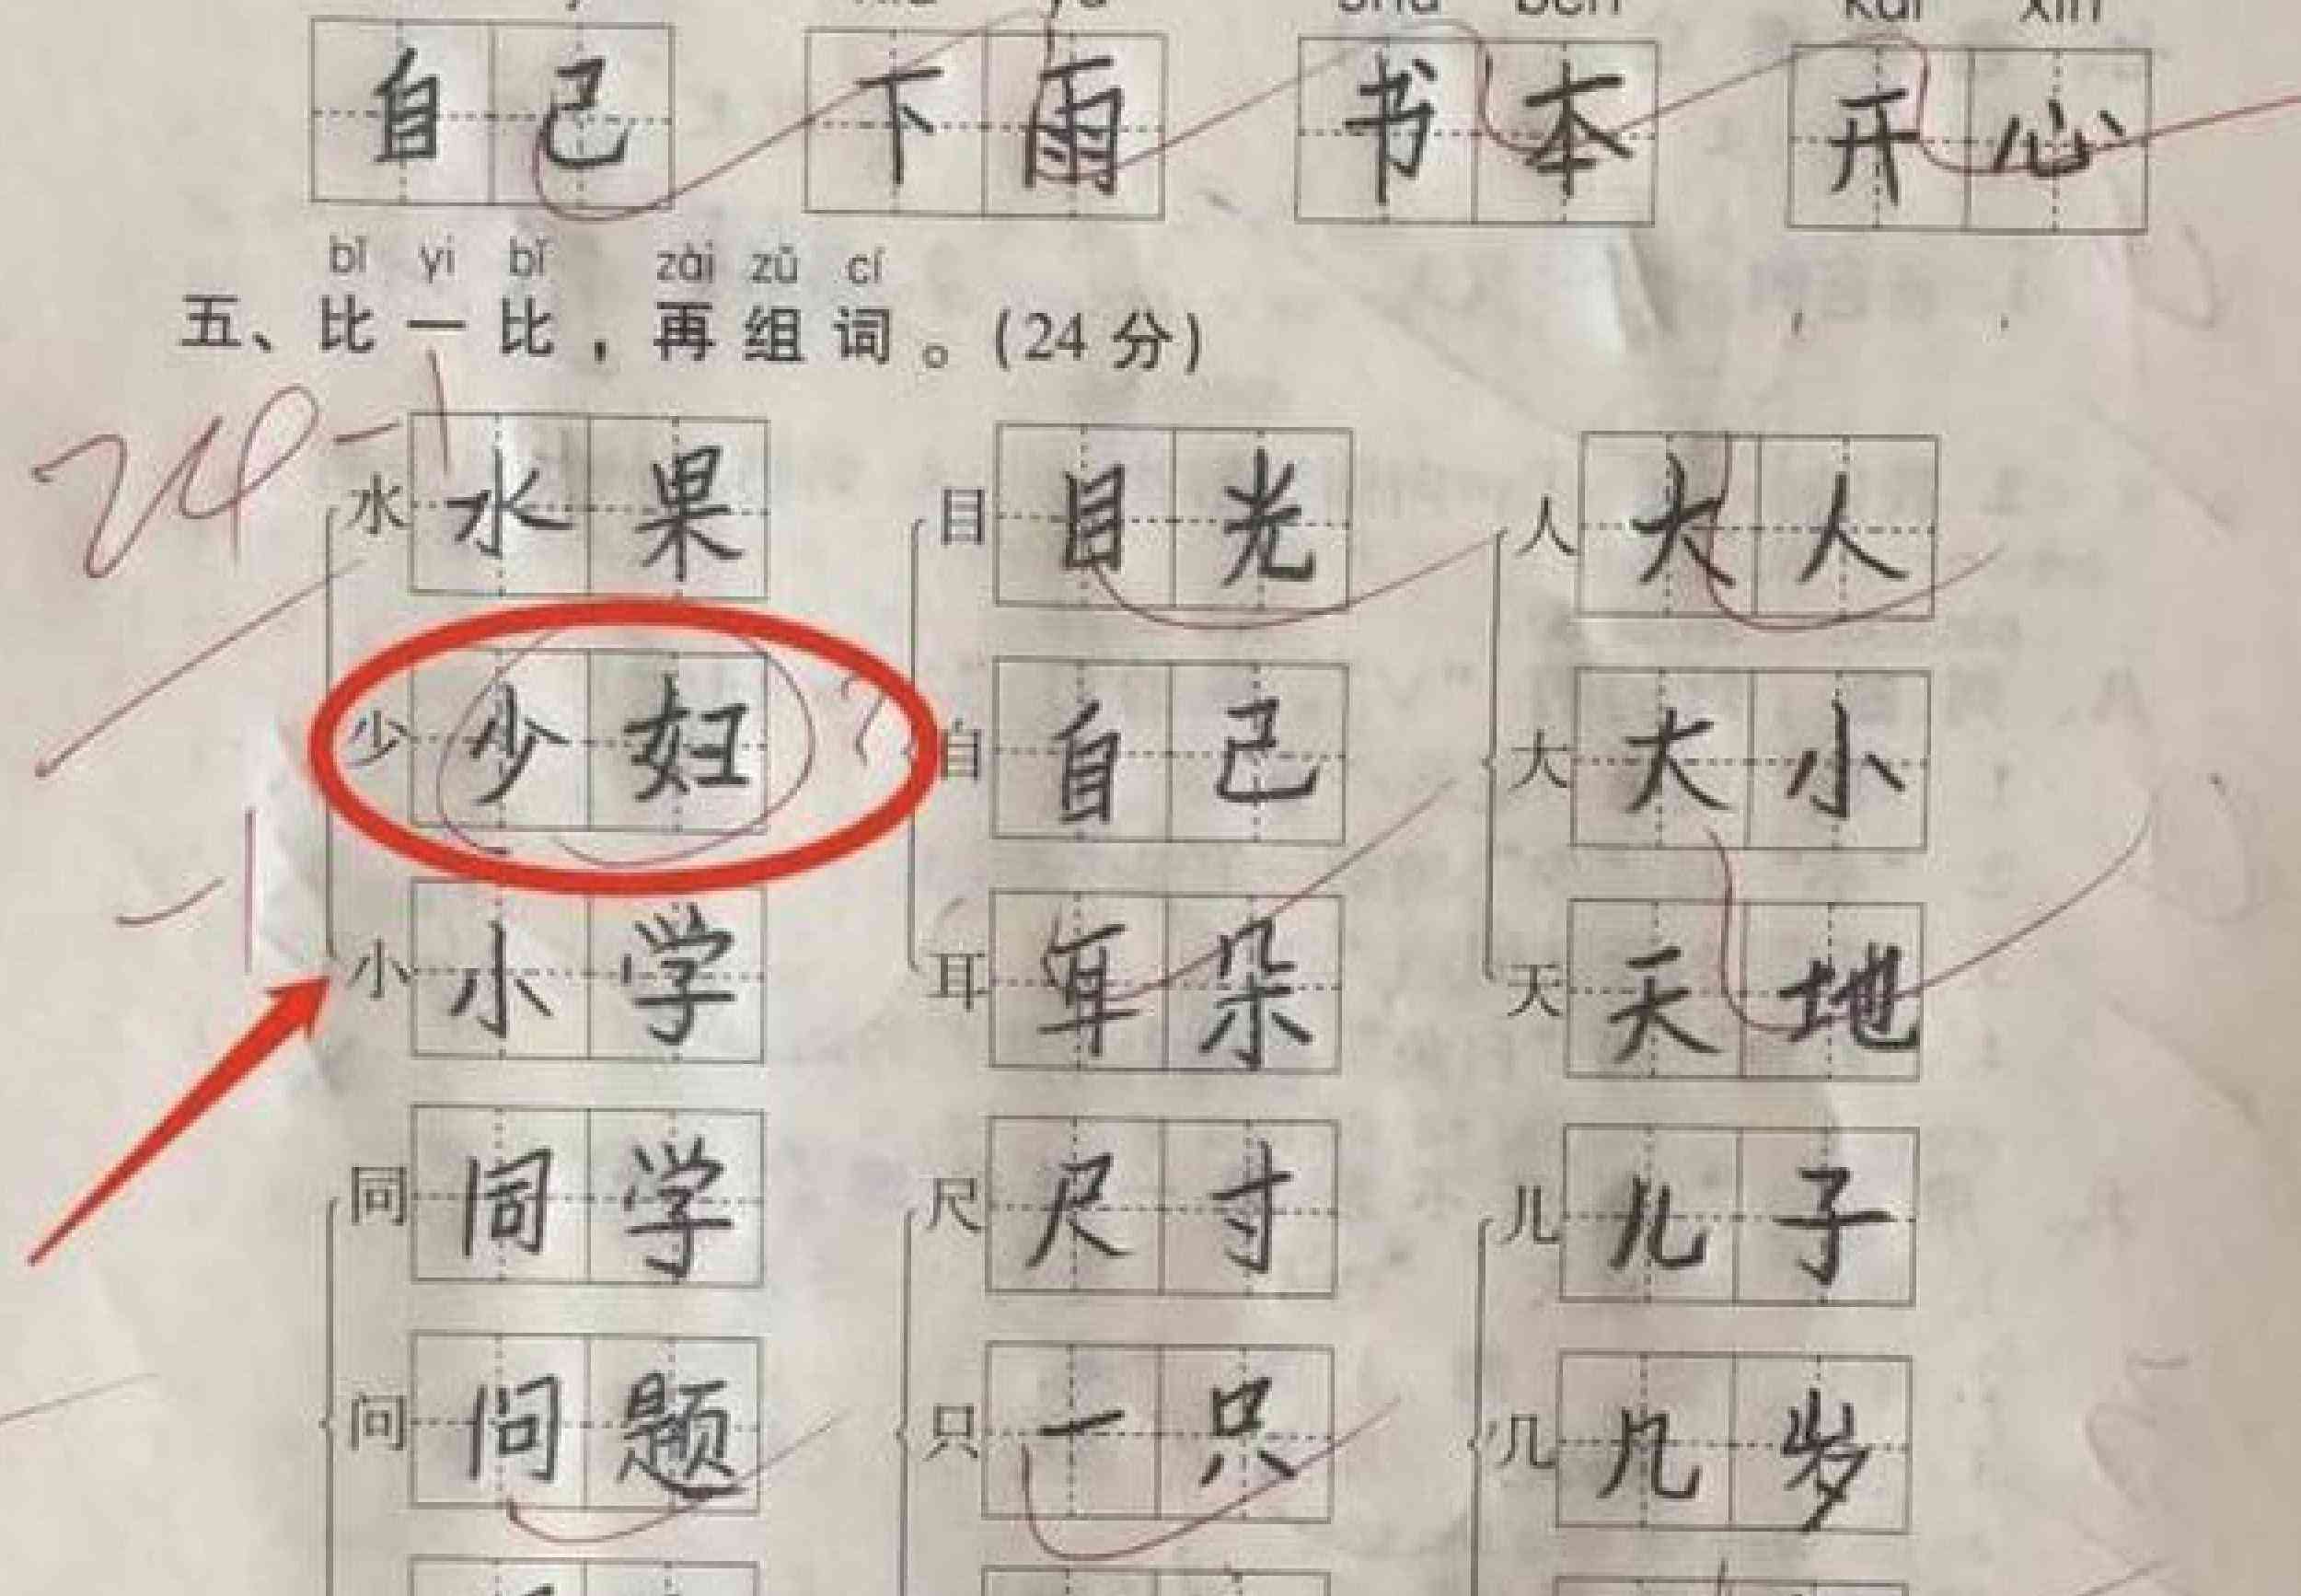 自己 下雨 书本 开心
bǐ yi bǐ zài zǔ cí
五、比一比，再组词。(24分)
24-1
水 水果 目 目光 人 大人
少 少妇 ? 自 自己 大 大小
-1
小 小学 耳 耳朵 天 天地
同 同学 尺 尺寸 儿 儿子
问 问题 只 一只 几 几岁